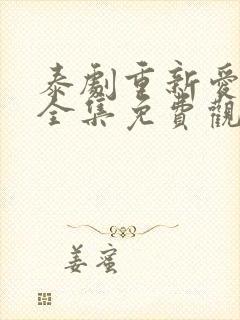 泰劇重新愛
全集免費觀
姜蜜